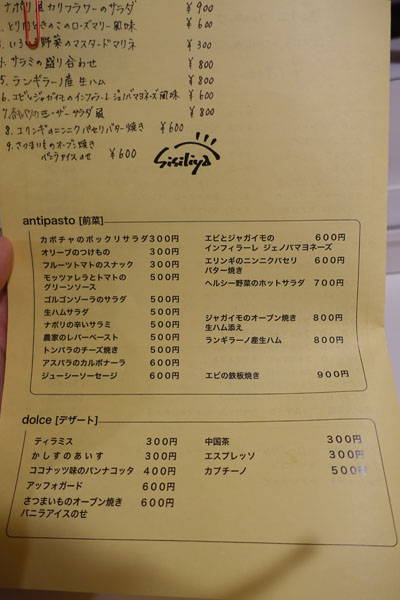 ナポリ風カリフラワーのサラダ ¥900
2. とり肉ときのこのローズマリー風味 ¥600
3. いろいろ野菜のマスタードマリネ ¥300
4. サラミの盛り合わせ ¥800
5. ランギラーノ産生ハム ¥800
6. エビとジャガイモのインフィラーレ ジェノバマヨネーズ風味 ¥600
シーザーサラダ風 ¥800
8. エリンギのニンニクパセリバター焼き ¥600
9. さつまいものオーブン焼き
バニラアイスのせ ¥600
Sisiliya
antipasto [前菜]
カボチャのポックリサラダ300円
オリーブのつけもの 300円
フルーツトマトのスナック 300円
モッツァレラとトマトの 500円
グリーンソース
ゴルゴンゾーラのサラダ 500円
生ハムサラダ 500円
ナポリの辛いサラミ 500円
農家のレバーペースト 500円
トンパラのチーズ焼き 500円
アスパラのカルボナーラ 600円
ジューシーソーセージ 600円
エビとジャガイモの 600円
インフィラーレ ジェノバマヨネーズ
エリンギのニンニクパセリ 600円
バター焼き
ヘルシー野菜のホットサラダ 700円
ジャガイモのオーブン焼き 800円
生ハム添え
ランギラーノ産生ハム 800円
エビの鉄板焼き 900円
dolce [デザート]
ティラミス 300円
かしすのあいす 300円
ココナッツ味のパンナコッタ 400円
アッフォガード 600円
さつまいものオーブン焼き 600円
バニラアイスのせ
中国茶 300円
エスプレッソ 300円
カプチーノ 500円